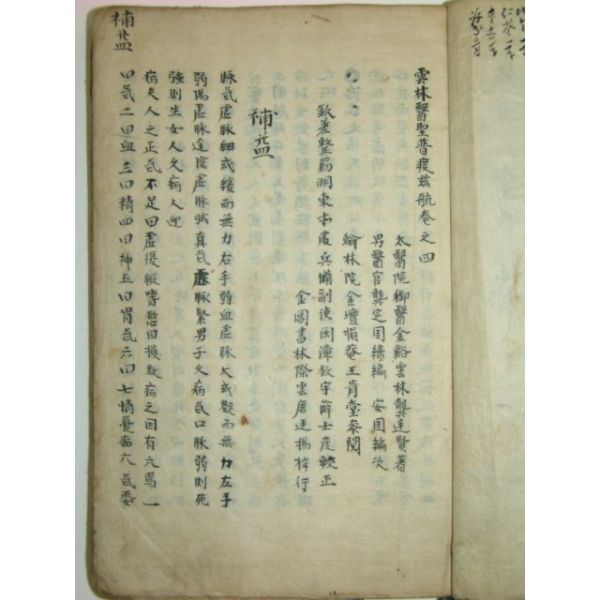 雲林醫聖普渡慈航卷之四
太醫院御醫金谿雲林龔廷賢著
男醫官龔定國續編 安國編次
翰林院金壇損菴王肯堂參閱
欽差整飭洞東市虔兵備副使閩漳欽宇薛士彦較正
金閶書林際雲唐廷揚梓行
補益
脉氣虛脉細或緩而無力右手弱血虛脉大或數而無力左手
弱傷虛脉遲陰虛脉弦真氣虛脉緊男子久病氣口脉弱則死
強則生女人久病人迎
病夫人之正氣不足曰虛後縱嗜慾曰損致病之因有六焉一
曰氣二曰血三曰精四曰神五曰胃氣六曰七情憂鬱六氣委
補益